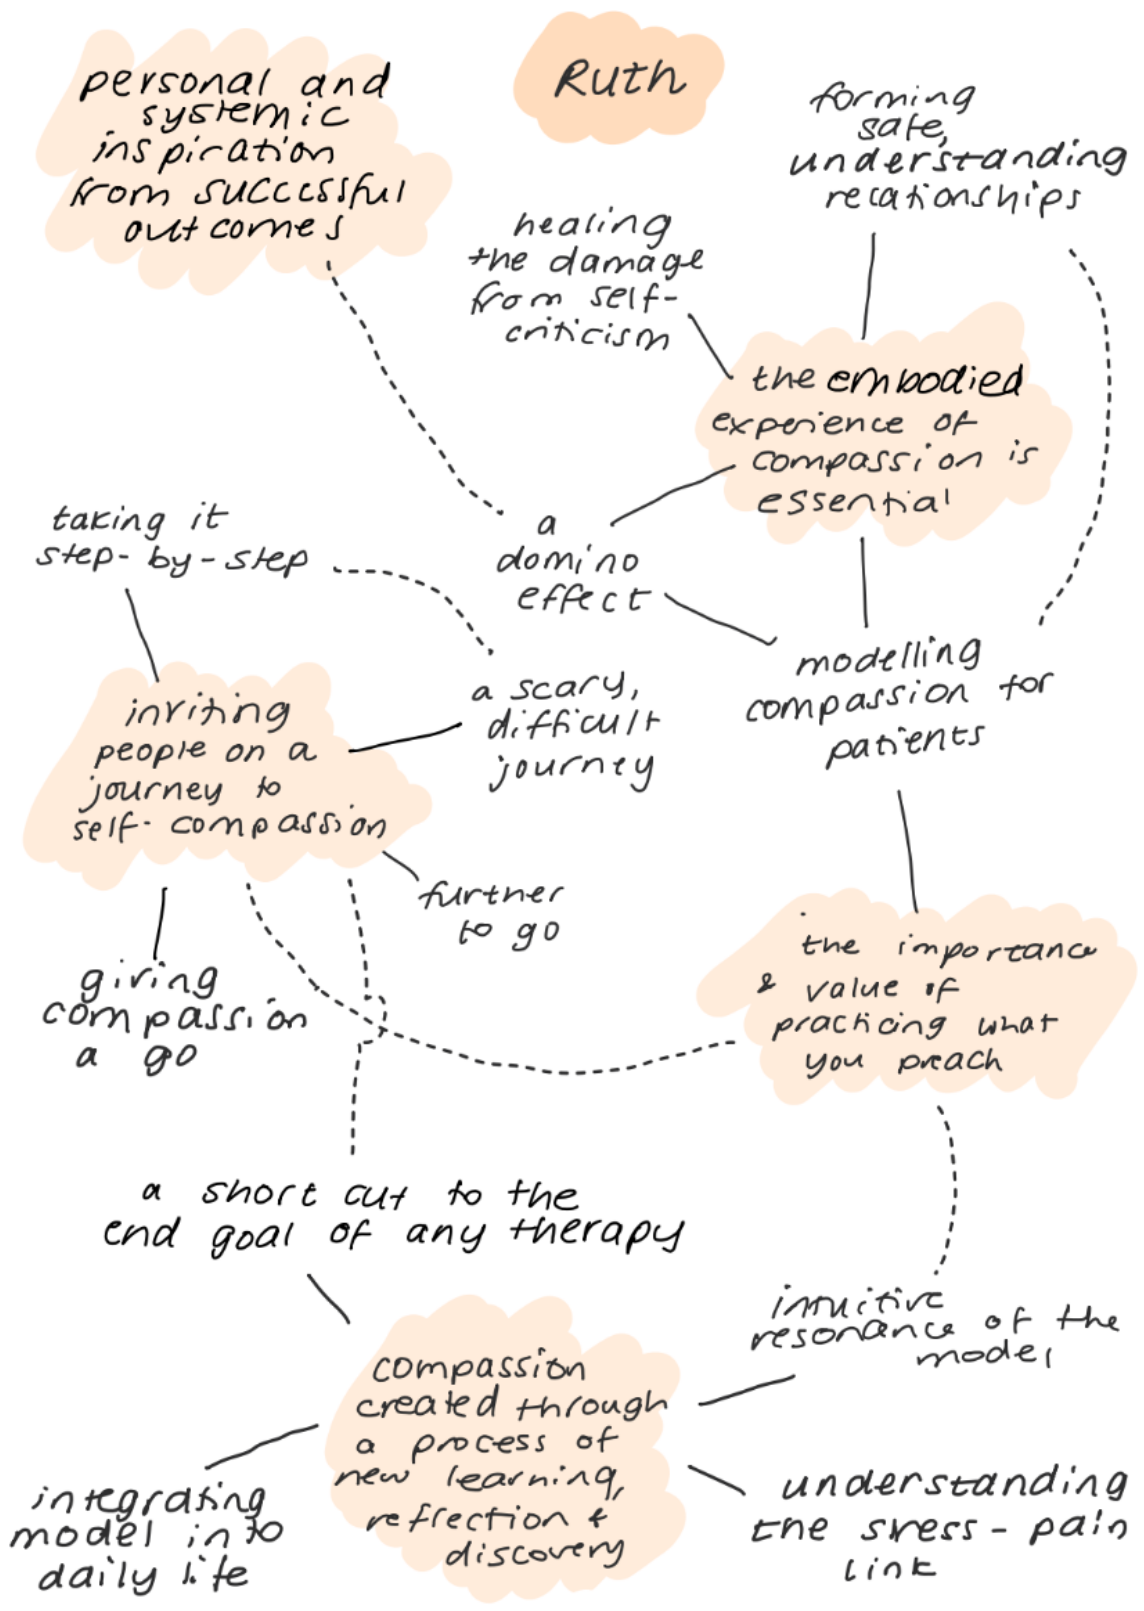 Ruth
personal and
systemic
inspiration
from successful
outcomes
forming
safe,
understanding
relationships
healing
the damage
from self-
criticism
the embodied
experience of
compassion is
essential
a
domino
effect
taking it
step-by-step
a scary,
difficult
journey
modelling
compassion for
patients
inviting
people on a
journey to
self-compassion
further
to go
giving
compassion
a go
the importance
& value of
practicing what
you preach
a short cut to the
end goal of any therapy
intuitive
resonance of the
model
compassion
created through
a process of
new learning,
reflection &
discovery
integrating
model into
daily life
understanding
the stress-pain
link